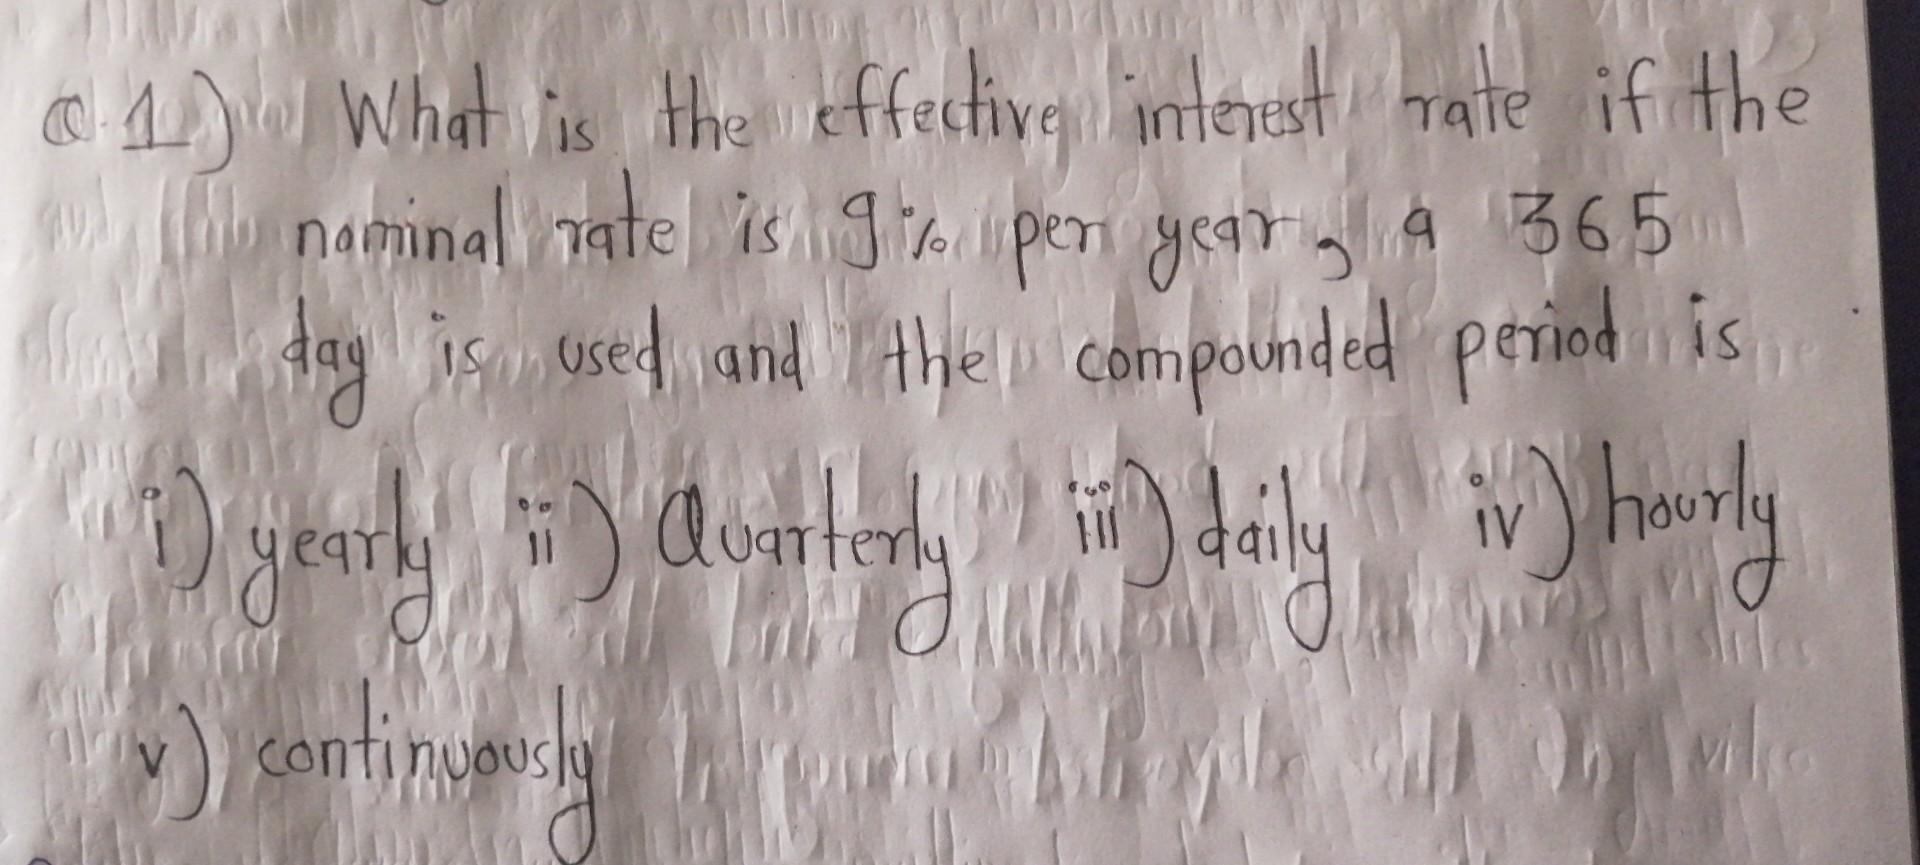 Q.1) What is the effective interest rate if the
nominal rate is 9% per year, a 365
day is used and the compounded period is
i) yearly ii) Quarterly iii) daily iv) hourly
v) continuously